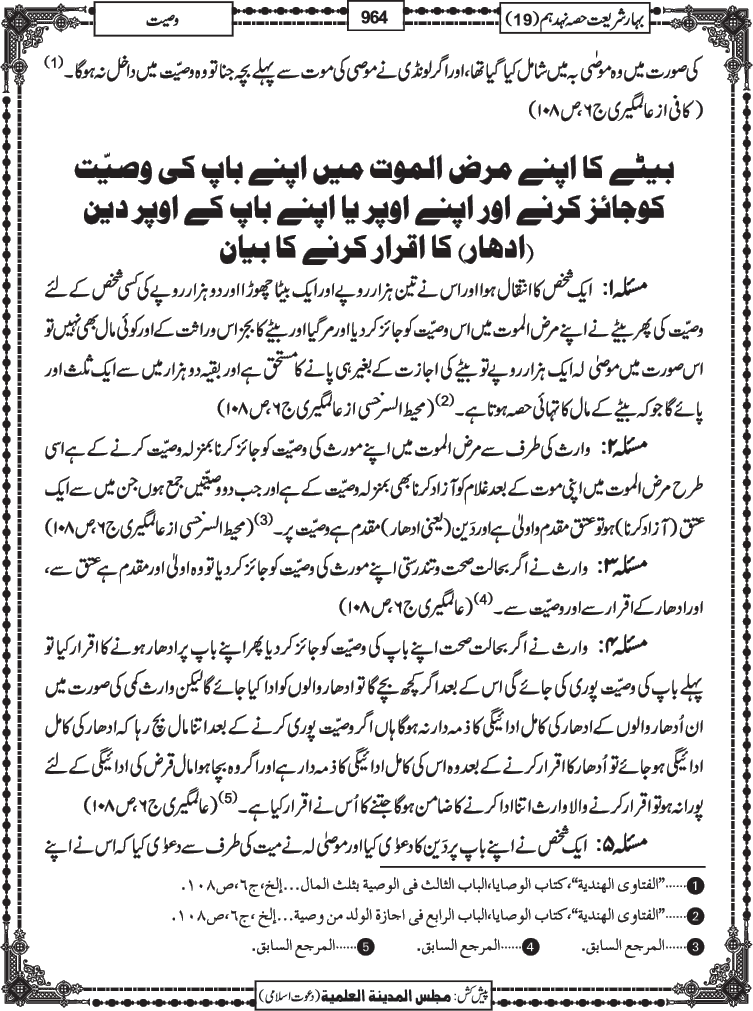 بہارِ شریعت حصہ نہدہم (19)
964
وصیت
کی صورت میں وہ موصٰی بہ میں شامل کیا گیا تھا، اور اگر لونڈی نے موصی کی موت سے پہلے بچہ جنا تو وہ وصیّت میں داخل نہ ہوگا۔(1)
(کافی از عالمگیری ج۶، ص۱۰۸)
بیٹے کا اپنے مرض الموت میں اپنے باپ کی وصیّت
کو جائز کرنے اور اپنے اوپر یا اپنے باپ کے اوپر دین
(ادھار) کا اقرار کرنے کا بیان
مسئلہ۱: ایک شخص کا انتقال ہوا اور اس نے تین ہزار روپے اور ایک بیٹا چھوڑا اور دو ہزار روپے کی کسی شخص کے لئے
وصیّت کی پھر بیٹے نے اپنے مرض الموت میں اس وصیّت کو جائز کر دیا اور مر گیا اور بیٹے کا بجز اس وراثت کے اور کوئی مال بھی نہیں تو
اس صورت میں موصٰی لہ ایک ہزار روپے تو بیٹے کی اجازت کے بغیر ہی پانے کا مستحق ہے اور بقیہ دو ہزار میں سے ایک ثلث اور
پائے گا جو کہ بیٹے کے مال کا تہائی حصہ ہوتا ہے۔(2) (محیط السرخسی از عالمگیری ج۶، ص۱۰۸)
مسئلہ۲: وارث کی طرف سے مرض الموت میں اپنے مورث کی وصیّت کو جائز کرنا بمنزلہ وصیّت کرنے کے ہے اسی
طرح مرض الموت میں اپنی موت کے بعد غلام کو آزاد کرنا بھی بمنزلہ وصیّت کے ہے اور جب دو وصیّتیں جمع ہوں جن میں سے ایک
عتق (آزاد کرنا) ہو تو عتق مقدم و اولیٰ ہے اور دَین (یعنی ادھار) مقدم ہے وصیّت پر۔(3) (محیط السرخسی از عالمگیری ج۶، ص۱۰۸)
مسئلہ۳: وارث نے اگر بحالت صحت و تندرستی اپنے مورث کی وصیّت کو جائز کر دیا تو وہ اولیٰ اور مقدم ہے عتق سے،
اور ادھار کے اقرار سے اور وصیّت سے۔(4) (عالمگیری ج۶، ص۱۰۸)
مسئلہ۴: وارث نے اگر بحالت صحت اپنے باپ کی وصیّت کو جائز کر دیا پھر اپنے باپ پر ادھار ہونے کا اقرار کیا تو
پہلے باپ کی وصیّت پوری کی جائے گی اس کے بعد اگر کچھ بچے گا تو ادھار والوں کو ادا کیا جائے گا لیکن وارث کمی کی صورت میں
ان اُدھار والوں کے ادھار کی کامل ادائیگی کا ذمہ دار نہ ہوگا ہاں اگر وصیّت پوری کرنے کے بعد اتنا مال بچ رہا کہ ادھار کی کامل
ادائیگی ہو جائے تو اُدھار کا اقرار کرنے کے بعد وہ اس کی کامل ادائیگی کا ذمہ دار ہے اور اگر وہ بچا ہوا مال قرض کی ادائیگی کے لئے
پورا نہ ہو تو اقرار کرنے والا وارث اتنا ادا کرنے کا ضامن ہوگا جتنے کا اُس نے اقرار کیا ہے۔(5) (عالمگیری ج۶، ص۱۰۸)
مسئلہ۵: ایک شخص نے اپنے باپ پر دَین کا دعوٰی کیا اور موصٰی لہ نے میت کی طرف سے دعوٰی کیا کہ اس نے اپنے
1......"الفتاوی الھندیة"، کتاب الوصایا، الباب الثالث فی الوصیة بثلث المال...إلخ، ج٦، ص١٠٨.
2......"الفتاوی الھندیة"، کتاب الوصایا، الباب الرابع فی اجازة الولد من وصیة...إلخ، ج٦، ص١٠٨.
3......المرجع السابق. 4......المرجع السابق. 5......المرجع السابق.
پیش کش: مجلس المدینة العلمیة (دعوت اسلامی)